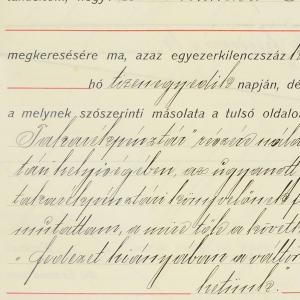 tanúsítom, hogy
megkeresésére ma, azaz egyezerkilenczszáz
hó tizenegyedik napján, dé
a melynek szószerinti másolata a tulsó oldalo
Takarékpénztár" részére nála
tári helyiségében, az ugyanott
takarékpénztári könyvelőnek f
mutattam, a mire tőle a követk
"fedezet hiányában a váltó
hetünk."